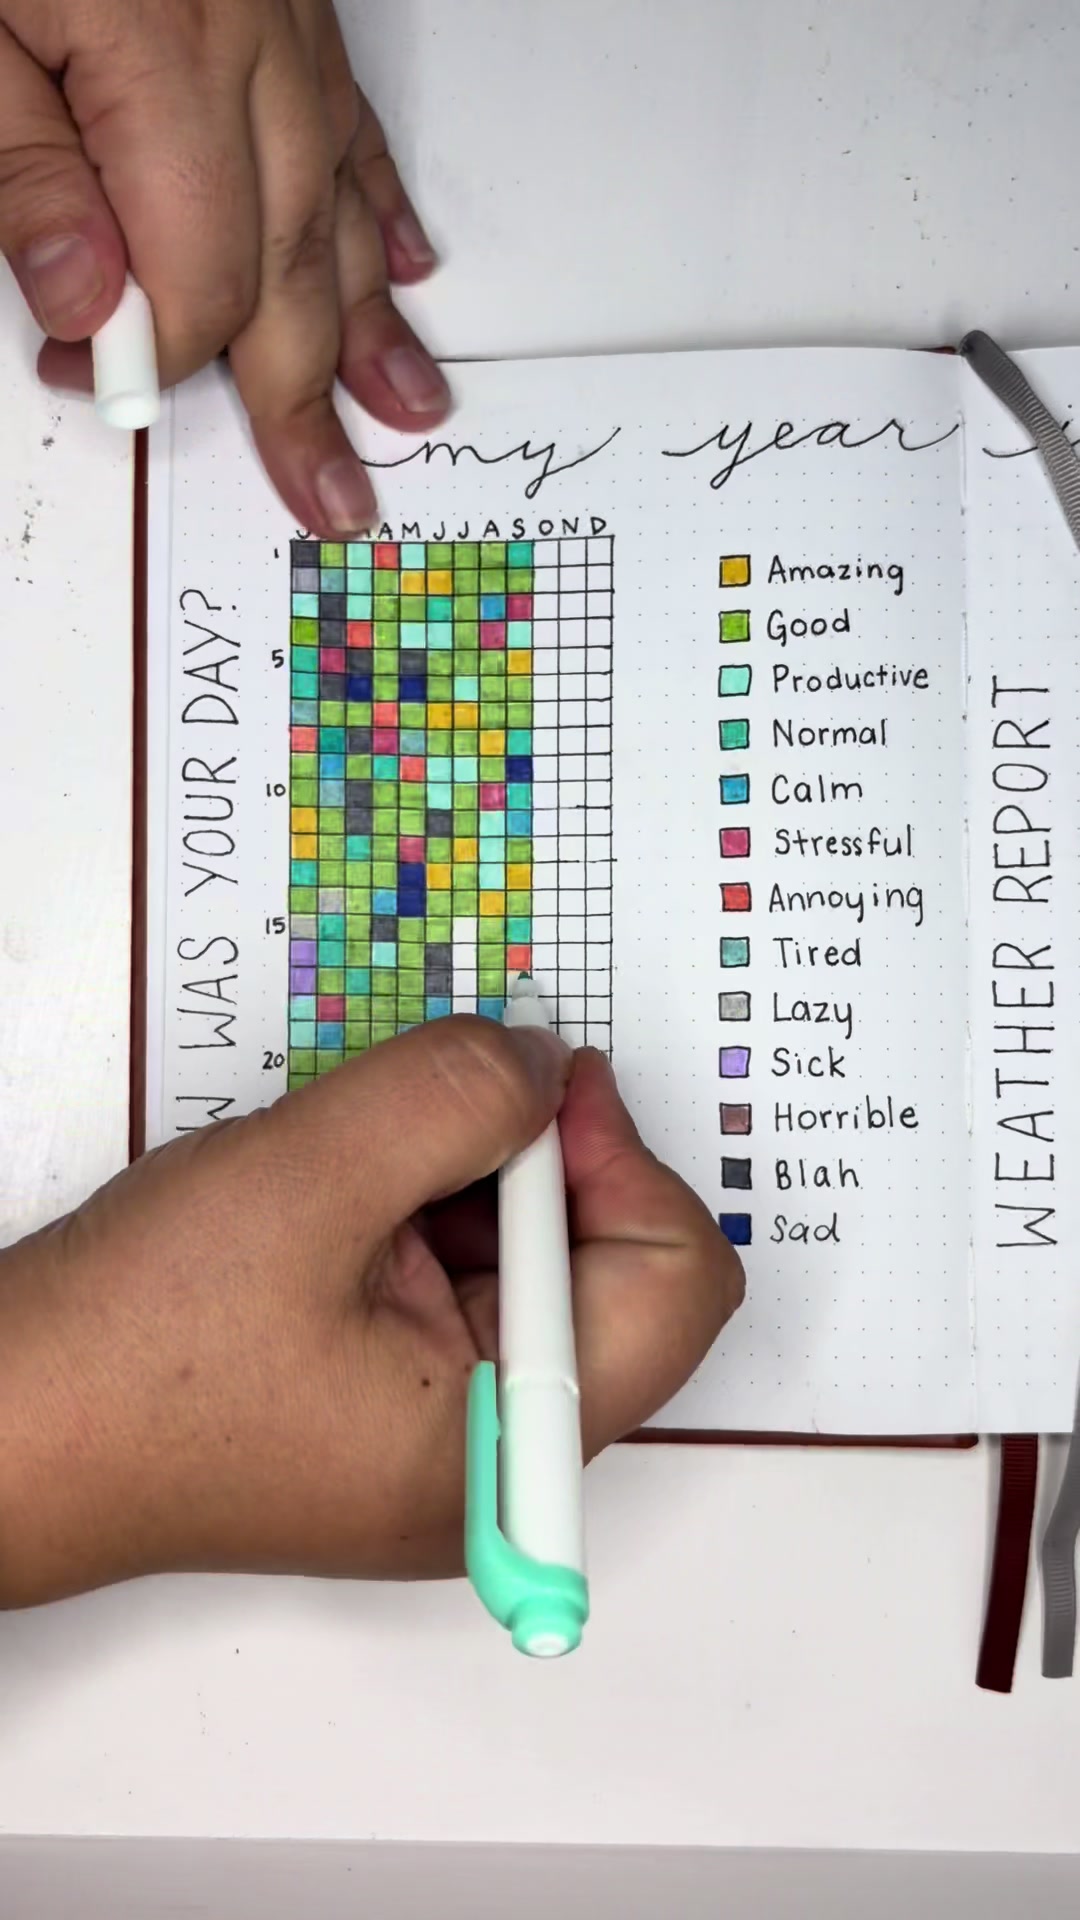 my year
J A M J J A S O N D
1
5
10
15
20
W WAS YOUR DAY?
Amazing
Good
Productive
Normal
Calm
Stressful
Annoying
Tired
Lazy
Sick
Horrible
Blah
Sad
WEATHER REPORT